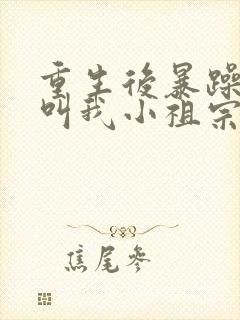 重生後暴躁
叫我小祖宗
焦尾參